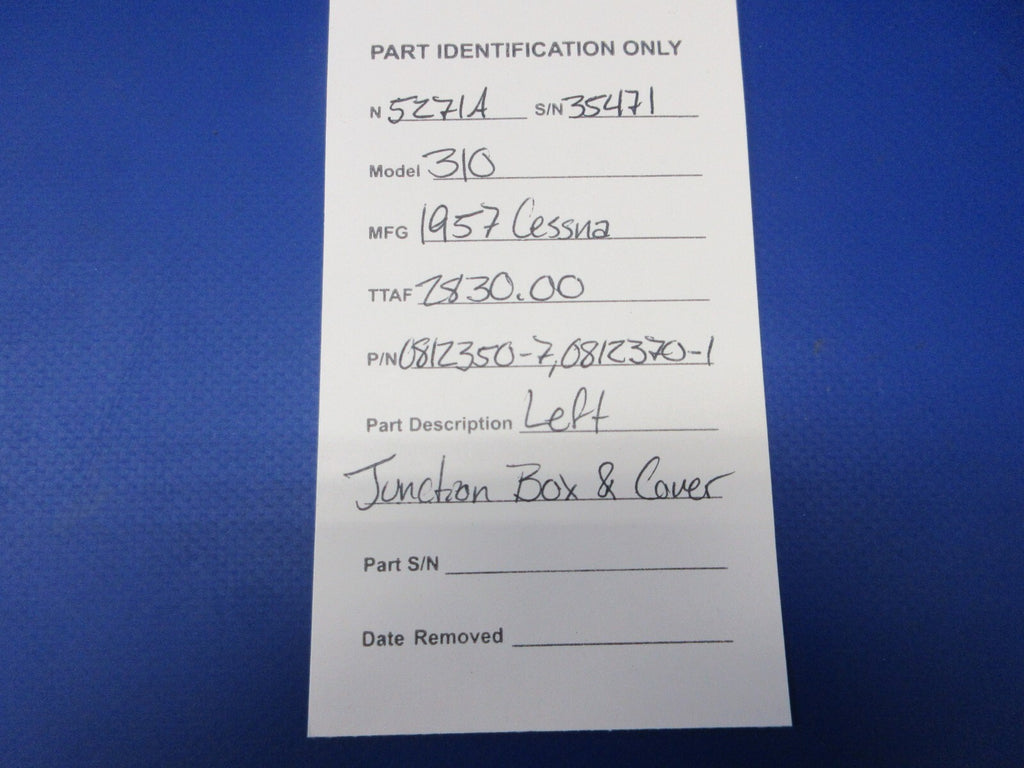 PART IDENTIFICATION ONLY
N 5271A S/N 35471
Model 310
MFG 1957 Cessna
TTAF 2830.00
P/N 0812350-7,0812370-1
Part Description Left
Junction Box & Cover
Part S/N
Date Removed